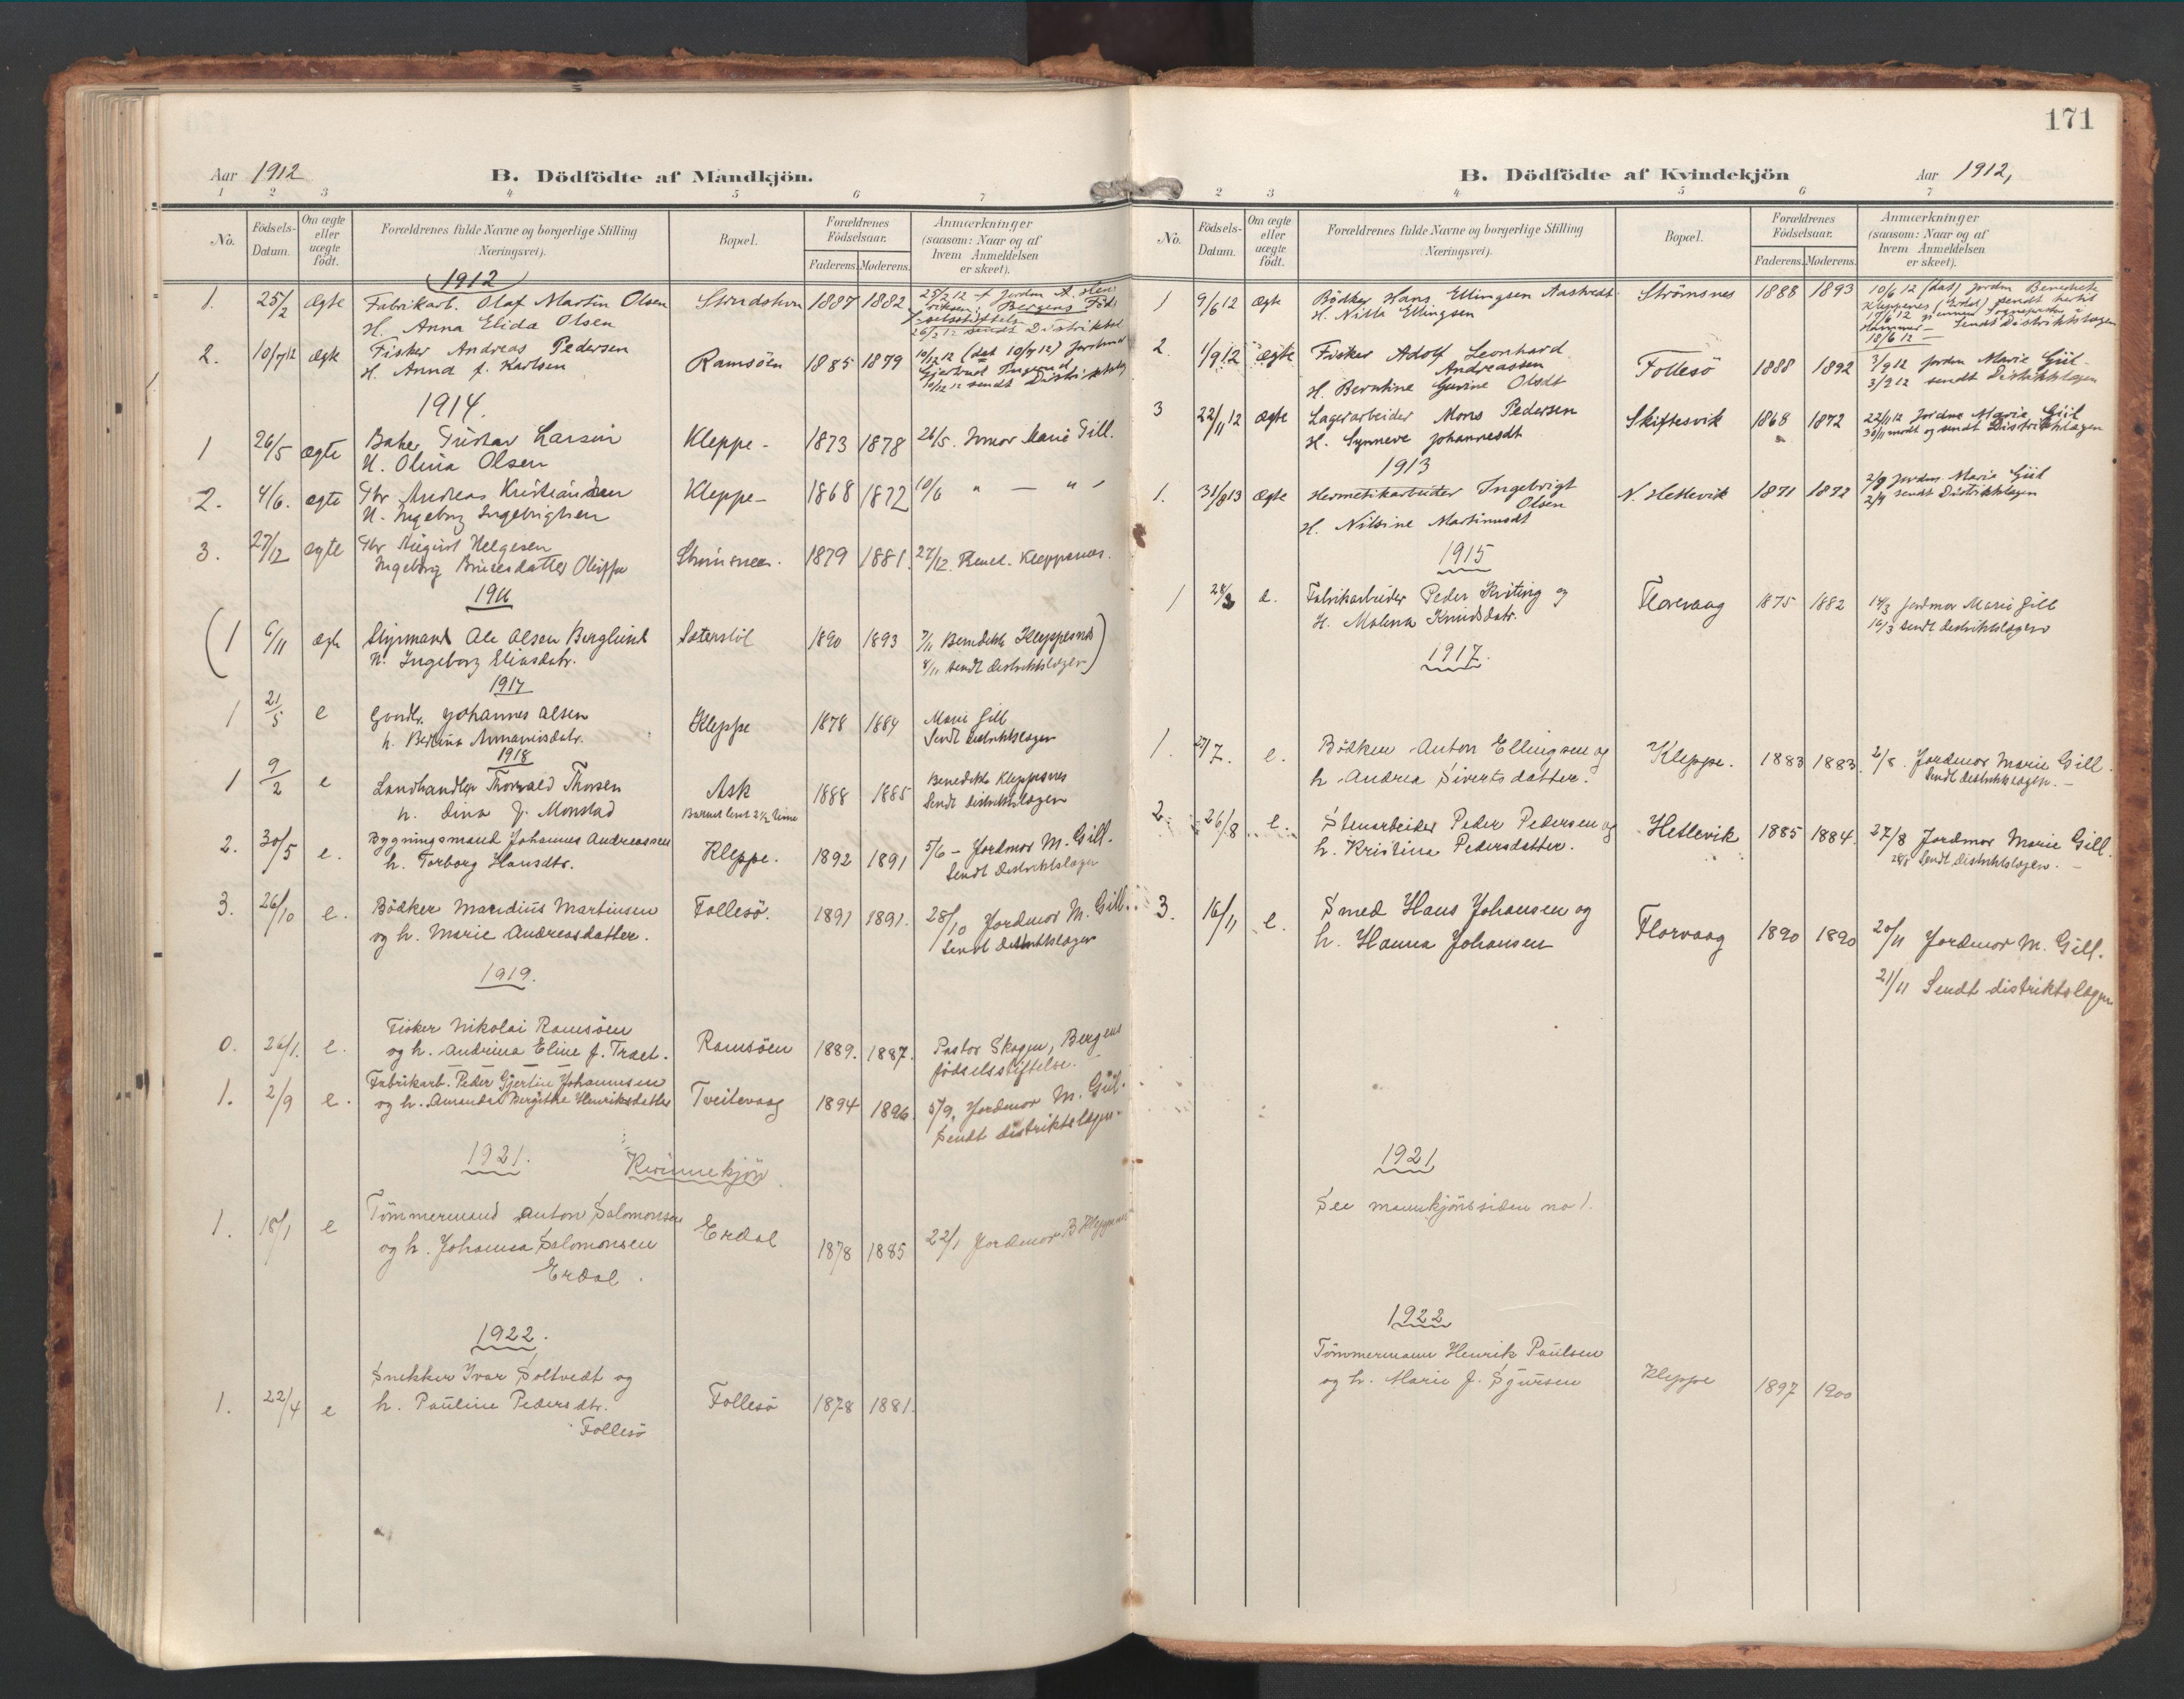 171
Aar 1912
B. Dödfödte af Mandkjön.
1 2 3 4 5 6 7
No.
Födsels-Datum.
Om ægte eller uægte födt.
Forældrenes fulde Navne og borgerlige Stilling (Næringsvei).
Bopæl.
Forældrenes Födselsaar.
Faderens. Moderens.
Anmærkninger (saasom: Naar og af hvem Anmeldelsen er skeet).
1912
1. 25/2 ægte Fabrikarb. Olaf Martin Olsen 1887 1882 25/2 12 f Jordm A. Hen
H. Anna Elida Olsen
riksen, Bergens Föd
selsstiftelse
26/2 12 sendt Distriktsl.
2. 10/7 12 ægte Fisker Andreas Pedersen Ramsöen 1885 1879 10/12 12 (dat 10/7 12) Jordmor
H. Anna f. Karlsen
10/12 12 sendt Distriktslæg
1914.
1 26/5 ægte Baker Gustav Larsen Kleppe - 1873 1878 26/5. Jmor Marie Gill.
H. Olina Olsen
2. 4/6. ægte Gbr Andreas Kristiansen Kleppe - 1868 1872 10/6 " — " -
H. Ingeborg Ingebrigtsen
3. 27/12 ægte Gbr August Helgesen Strömsnes. 1879 1881. 27/12. Bened. Kleppesnes.
Ingeborg
1916
(1 6/11 ægte Styrmand Ole Olsen Berglund Sæterstöl 1890 1893 7/11 Benedikte Kleppesnes
H. Ingeborg Eliasdatr. 8/11 sendt distriktslægen)
1917
1 21/5 e Gaardbr. Johannes Olsen Kleppe 1878 1884 Marie Gill
h. Bertina Sendt distriktslægen
1918
1 9/2 e Landhandler Thorvald Thorsen Ask 1888 1885 Benedikte Kleppesnes
h. Dina f. Monstad Barnet levet 2½ time Sendt distriktslægen
2. 30/5 e. Bygningsmand Johannes Andreassen Kleppe. 1892 1891 5/6 - Jordmor M. Gill.
h. Torborg Hansdtr. Sendt distriktslægen
3. 26/10 e. Bödker Mandius Martinsen Follesö. 1891 1891. 28/10 Jordmor M. Gill.
og h. Marie Andreasdatter. Sendt distriktslægen
1919.
0. 26/1. e. Fisker Nikolai Ramsöen
og h. Andrina Eline f. Træt. Ramsöen 1889. 1887. Pastor Skagen, Bergens
födselsstiftelse.
1. 2/9 e. Fabrikarb. Peder Gjertin Johannesen
og h. Amanda Bergithe Henriksdatter Tveitevaag 1894 1896. 5/9, Jordmor M. Gill.
Sendt distriktslægen.
1921. Kvinnekjön.
1. 18/1 e Tömmermand Anton Salomonsen Erdal 1878 1885 22/1 Jordmor
og h. Johanna Salomonsen
Erdal.
1922.
Snekker Ivar Soltvedt og
1. 22/4 e h. Pauline Pedersdtr. Follesö 1878 1881.
Follesö
B. Dödfödte af Kvindekjön
Aar 1912,
2 3 4 5 6 7
No.
Födsels-Datum.
Om ægte eller uægte födt.
Forældrenes fulde Navne og borgerlige Stilling (Næringsvei).
Bopæl.
Forældrenes Födselsaar.
Faderens. Moderens.
Anmærkninger (saasom: Naar og af hvem Anmeldelsen er skeet).
1 9/6 12 ægte Bödker Hans Ellingsen Aastvedt Strömsnes 1888 1893 10/6 12 (dat) Jordm Benedicte
H. Nilla Ellingsen
Kleppenes (Erdal) sendt hertil
17/6 12 gjennem Sognepresten i
Hammer - Sendt Distriktslægen
18/6 12 -
2. 1/9 12 ægte Fisker Adolf Leonhard
Andreassen Follesö 1888 1892 3/9 12 Jordm Marie Gill
H. Berntine Gurine Olsdt 3/9 12 sendt Distriktslægen
3 22/11 12 ægte Lagerarbeider Mons Pedersen Skiftesvik 1868 1872 22/11 12 Jordm Marie Gill
H. Synneve Johannesdt
30/11 modt og sendt Distriktslægen
1913
1. 31/8 13 ægte Hermetikarbeider Ingebrigt
Olsen N. Hetlevik 1871 1872 2/9 Jordm. Marie Gill
H. Nilsine Martinusdt 2/9 sendt Distriktslægen
1915
1 e. Fabrikarbeider Peder Kviting og Florvaag 1875 1882 14/3 Jordmor Marie Gill
H. Malena Knudsdatr. 16/3 sendt distriktslægen
1917.
1. 27/7. e. Bödker Anton Ellingsen og Kleppe. 1883 1883. 2/8. Jordmor Marie Gill.
h. Andrea Sivertsdatter. Sendt distriktslægen. -
2. 26/8 e. Stenarbeider Peder Pedersen og Hetlevik 1885 1884. 27/8 Jordmor Marie Gill.
h. Kristina Pedersdatter. 28/8 Sendt distriktslægen. -
3. 16/11 e. Smed Hans Johansen og
h. Hanna Johansen Florvaag 1890 1890 20/11 Jordmor M. Gill.
21/11 Sendt distriktslægen
1921
See mannkjönssiden no 1.
1922
Tömmermann Henrik Paulsen
og h. Marie f. Sjursen Kleppe 1897 1900